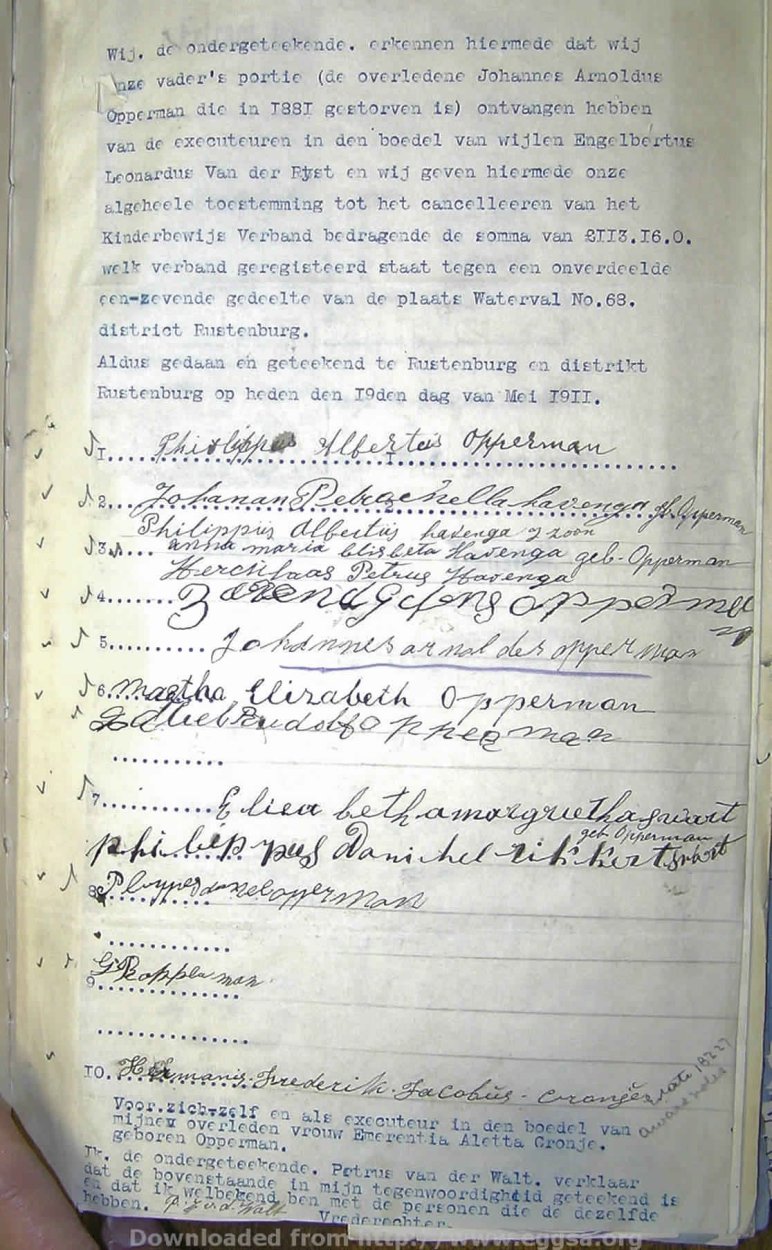 Wij. de ondergeteekende. erkennen hiermede dat wij
nze vader's portie (de overledene Johannes Arnoldus
Opperman die in I88I gestorven is) ontvangen hebben
van de executeuren in den boedel van wijlen Engelbertus
Leonardus Van der Ryst en wij geven hiermede onze
algeheele toestemming tot het cancelleeren van het
Kinderbewijs Verband bedragende de somma van £II3.I6.0.
welk verband geregisteerd staat tegen een onverdeelde
een-zevende gedeelte van de plaats Waterval No.68.
district Rustenburg.
Aldus gedaan en geteekend te Rustenburg en distrikt
Rustenburg op heden den I9den dag van Mei I9II.
I. Philippus Albertus Opperman
2. Johanan Havenga gb. Opperman
Philippus Albertus Havenga zoon
3. anna maria Elisbeta Havenga geb-Opperman
Petrus Havenga
4. opperman
5. Johannes arnoldes opperman
6. Martha Elizabeth Opperman
Rudolf Opperman
7. Eliza betha margrietha swart
geb Opperman
phileppus Danichel rikkert swart
8. opperman
9. GR opperman
IO. Hermanis. Frederik. Jacobus-Cronje
Estate 18227
Voor.zich-zelf en als executeur in den boedel van
mijnen overleden vrouw Emerentia Aletta Cronje.
geboren Opperman.
Ik. de ondergeteekende. Petrus van der Walt. verklaar
dat de bovenstaande in mijn tegenwoordigheid geteekend is
en dat ik welbekend ben met de personen die de dezelfde
hebben. P. v. d. Walt
Vrederechter.
Downloaded from http://www.eggsa.org